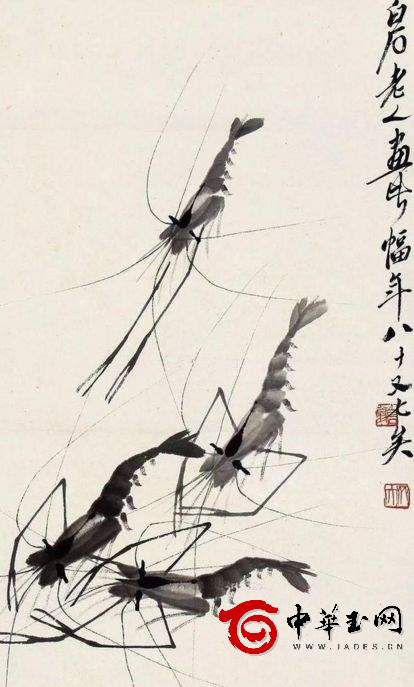 白石老人畫此幅年八十又七矣
中華玉网
WWW.JADES.CN